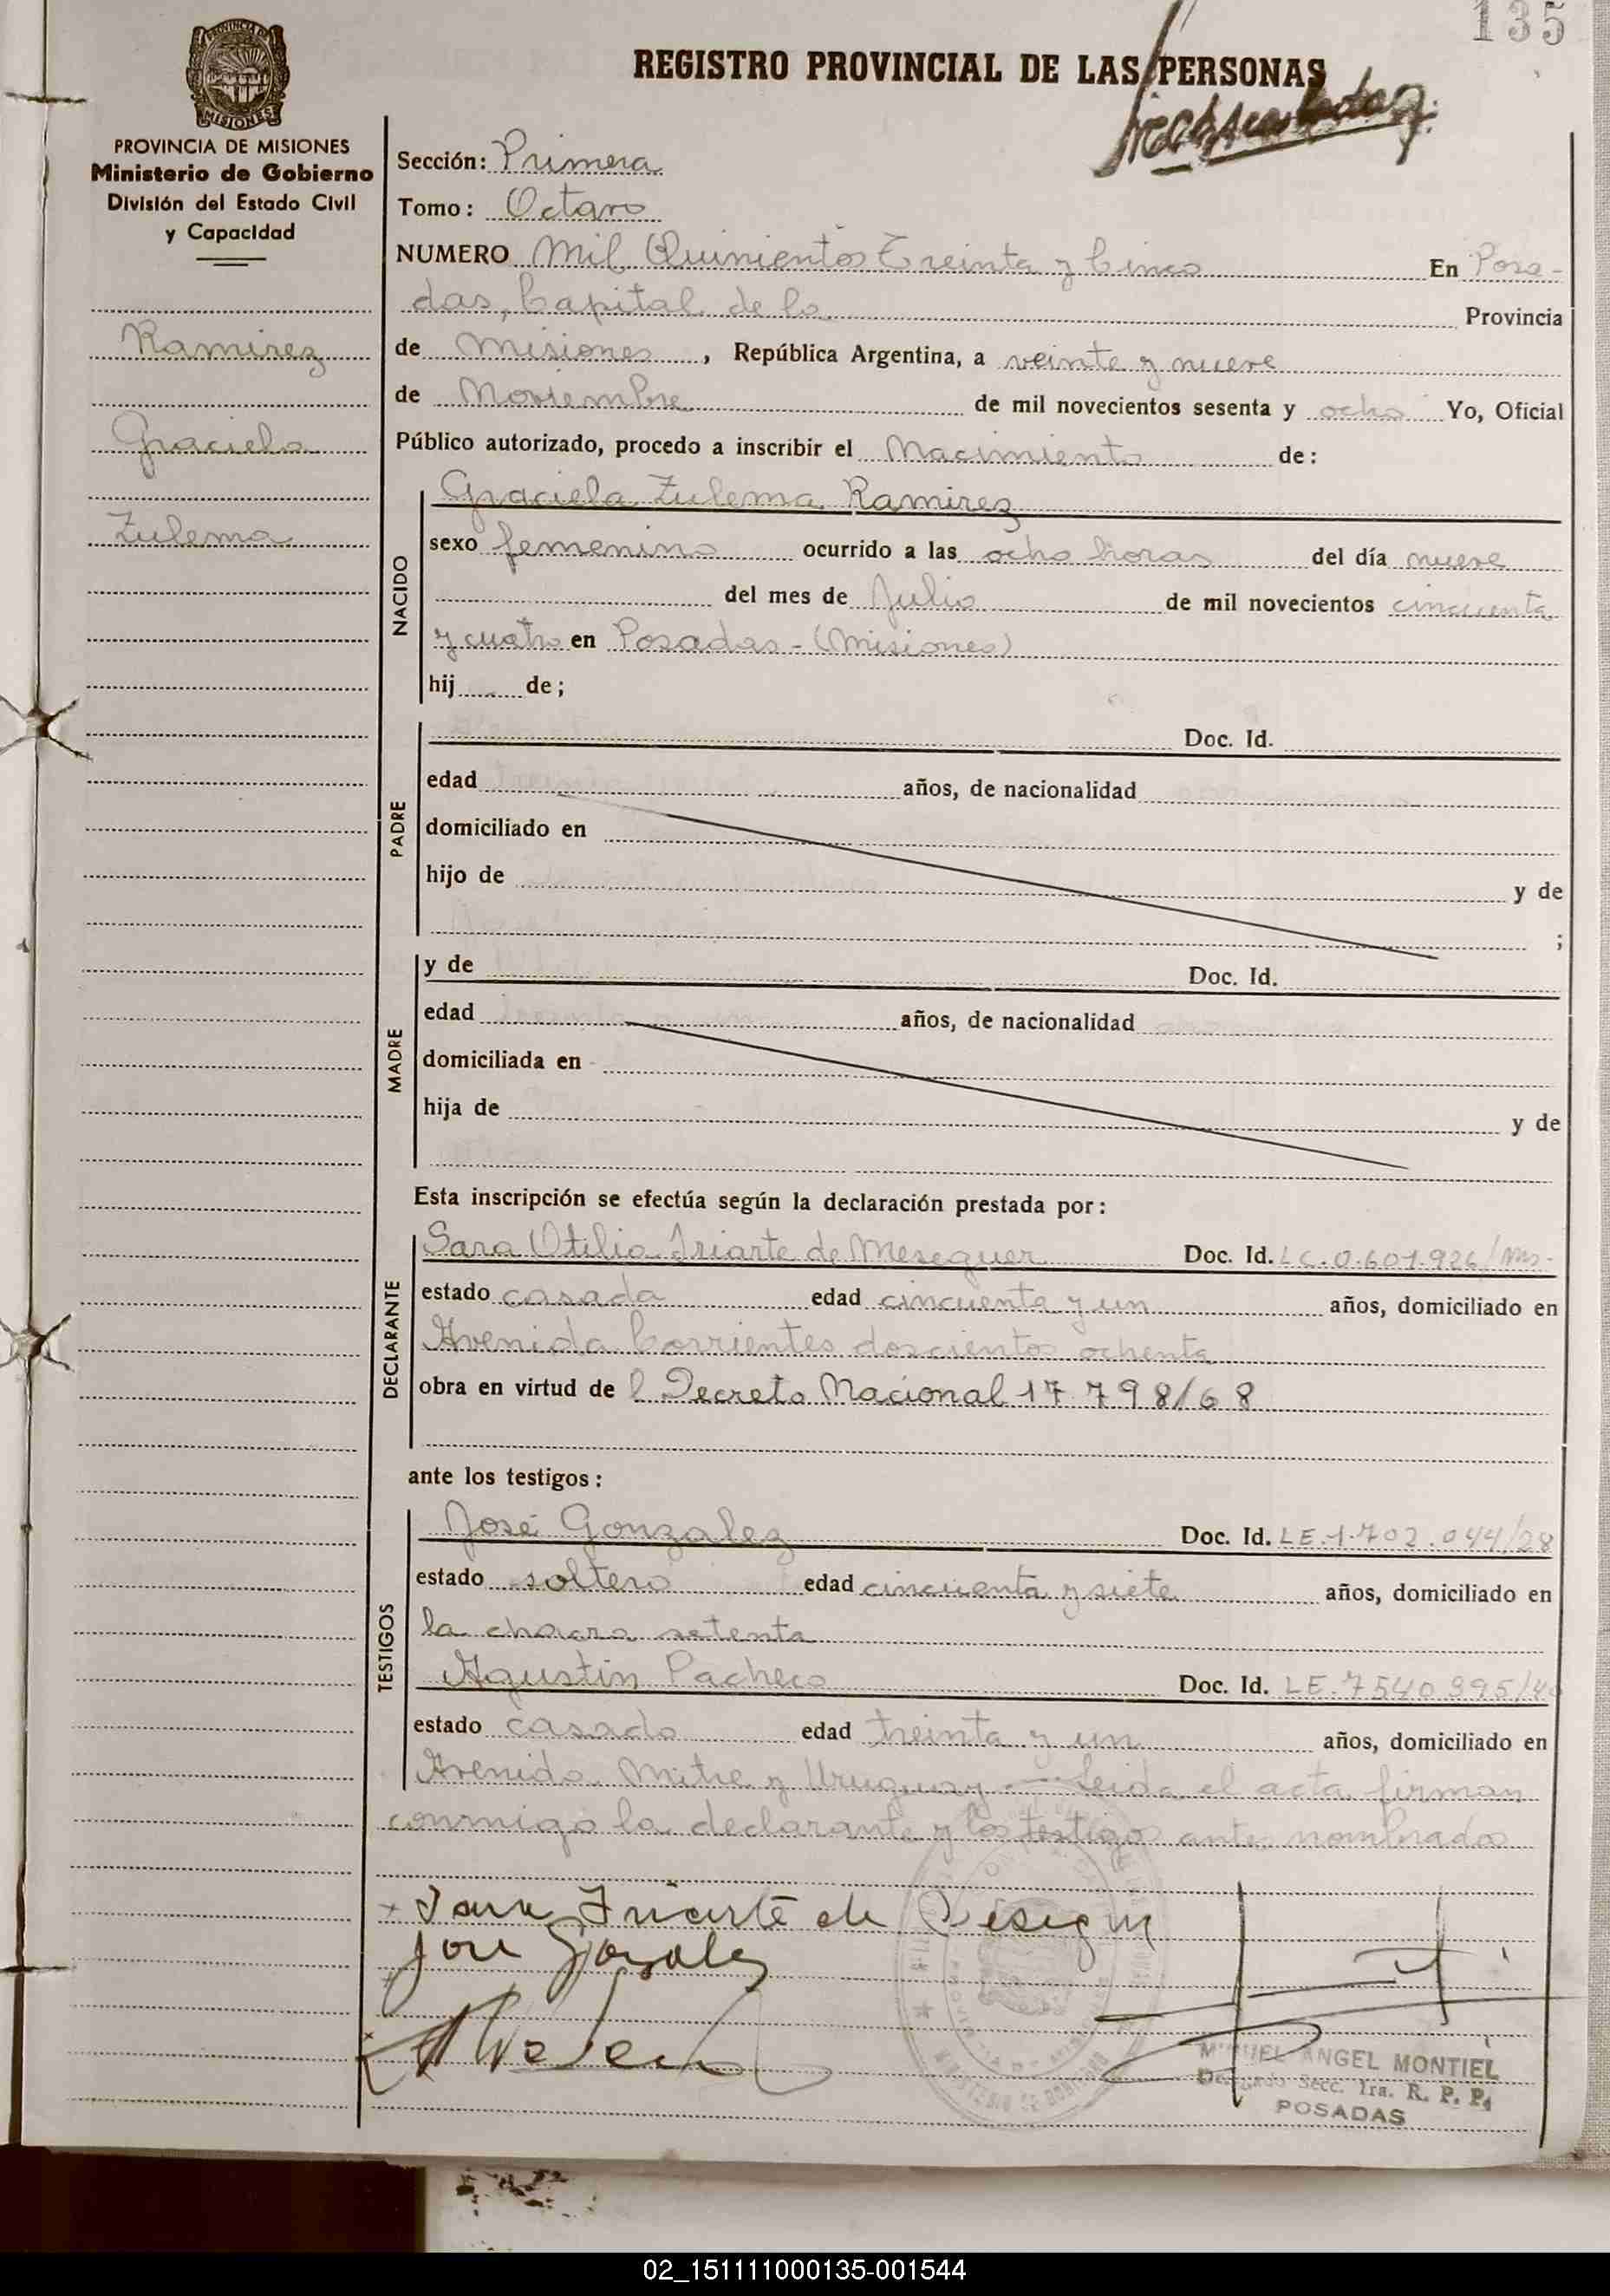 135
REGISTRO PROVINCIAL DE LAS PERSONAS
PROVINCIA DE MISIONES
MISIONES
PROVINCIA DE MISIONES
Ministerio de Gobierno
División del Estado Civil
y Capacidad
Ramirez
Graciela
Zulema
Sección: Primera
Tomo: Octavo
NUMERO Mil Quinientos Treinta y Cinco En Posa-
das, Capital de la Provincia
de Misiones, República Argentina, a veinte y nueve
de Noviembre de mil novecientos sesenta y ocho Yo, Oficial
Público autorizado, procedo a inscribir el Nacimiento de:
NACIDO
Graciela Zulema Ramirez
sexo femenino ocurrido a las ocho horas del día nueve
del mes de Julio de mil novecientos cincuenta
y cuatro en Posadas - (Misiones)
hij de;
PADRE
Doc. Id.
edad años, de nacionalidad
domiciliado en
hijo de y de
;
MADRE
y de Doc. Id.
edad años, de nacionalidad
domiciliada en
hija de y de
Esta inscripción se efectúa según la declaración prestada por:
DECLARANTE
Sara Otilia Iriarte de Meseguer Doc. Id. LC. 0.601.926/Ms-
estado casada edad cincuenta y un años, domiciliado en
Avenida Corrientes doscientos ochenta
obra en virtud de l Decreto Nacional 17.798/68
ante los testigos:
TESTIGOS
José Gonzalez Doc. Id. LE.1.702.044/28
estado soltero edad cincuenta y siete años, domiciliado en
la chacra setenta
Agustin Pacheco Doc. Id. LE.7540395/4
estado casado edad treinta y un años, domiciliado en
Avenida Mitre y Uruguay — leida el acta firman
conmigo la declarante y los testigos antes nombrados
Sara Iriarte de Meseguer
Jose Gonzalez
MIGUEL ANGEL MONTIEL
Delegado Secc. 1ra. R. P. P.
POSADAS
MINISTERIO DE GOBIERNO
02_151111000135-001544